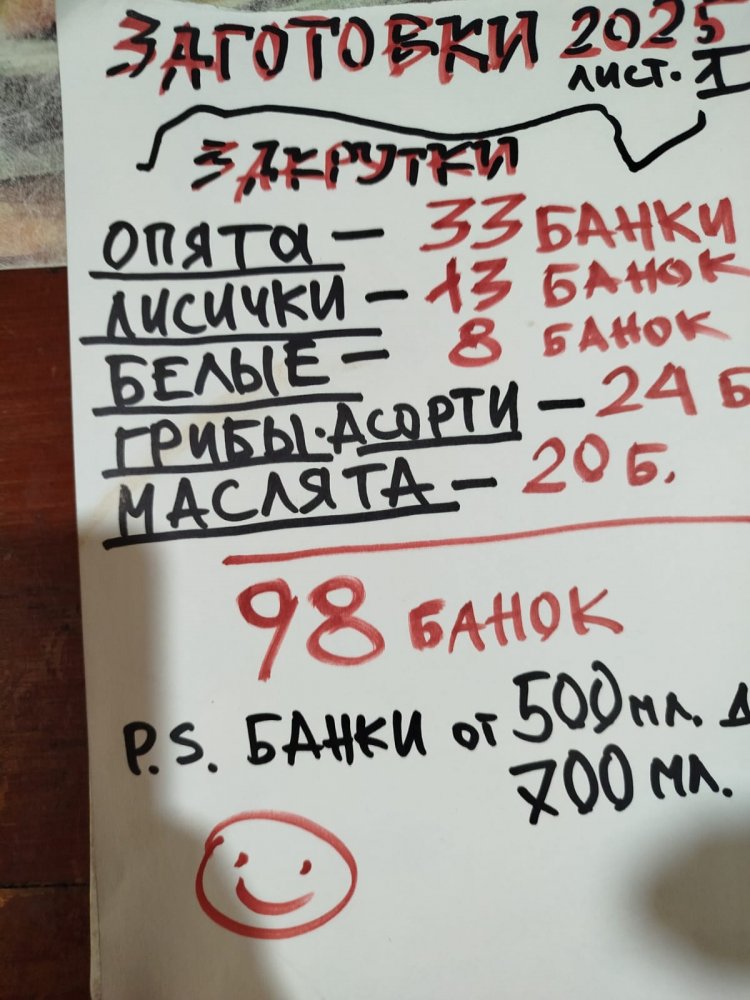 ЗАГОТОВКИ 2025
ЛИСТ. 1
ЗАКРУТКИ
ОПЯТА – 33 БАНКИ
ЛИСИЧКИ – 13 БАНОК
БЕЛЫЕ – 8 БАНОК
ГРИБЫ·АСОРТИ – 24 Б
МАСЛЯТА – 20 Б.
98 БАНОК
P.S. БАНКИ ОТ 500 МЛ. Д
700 МЛ.